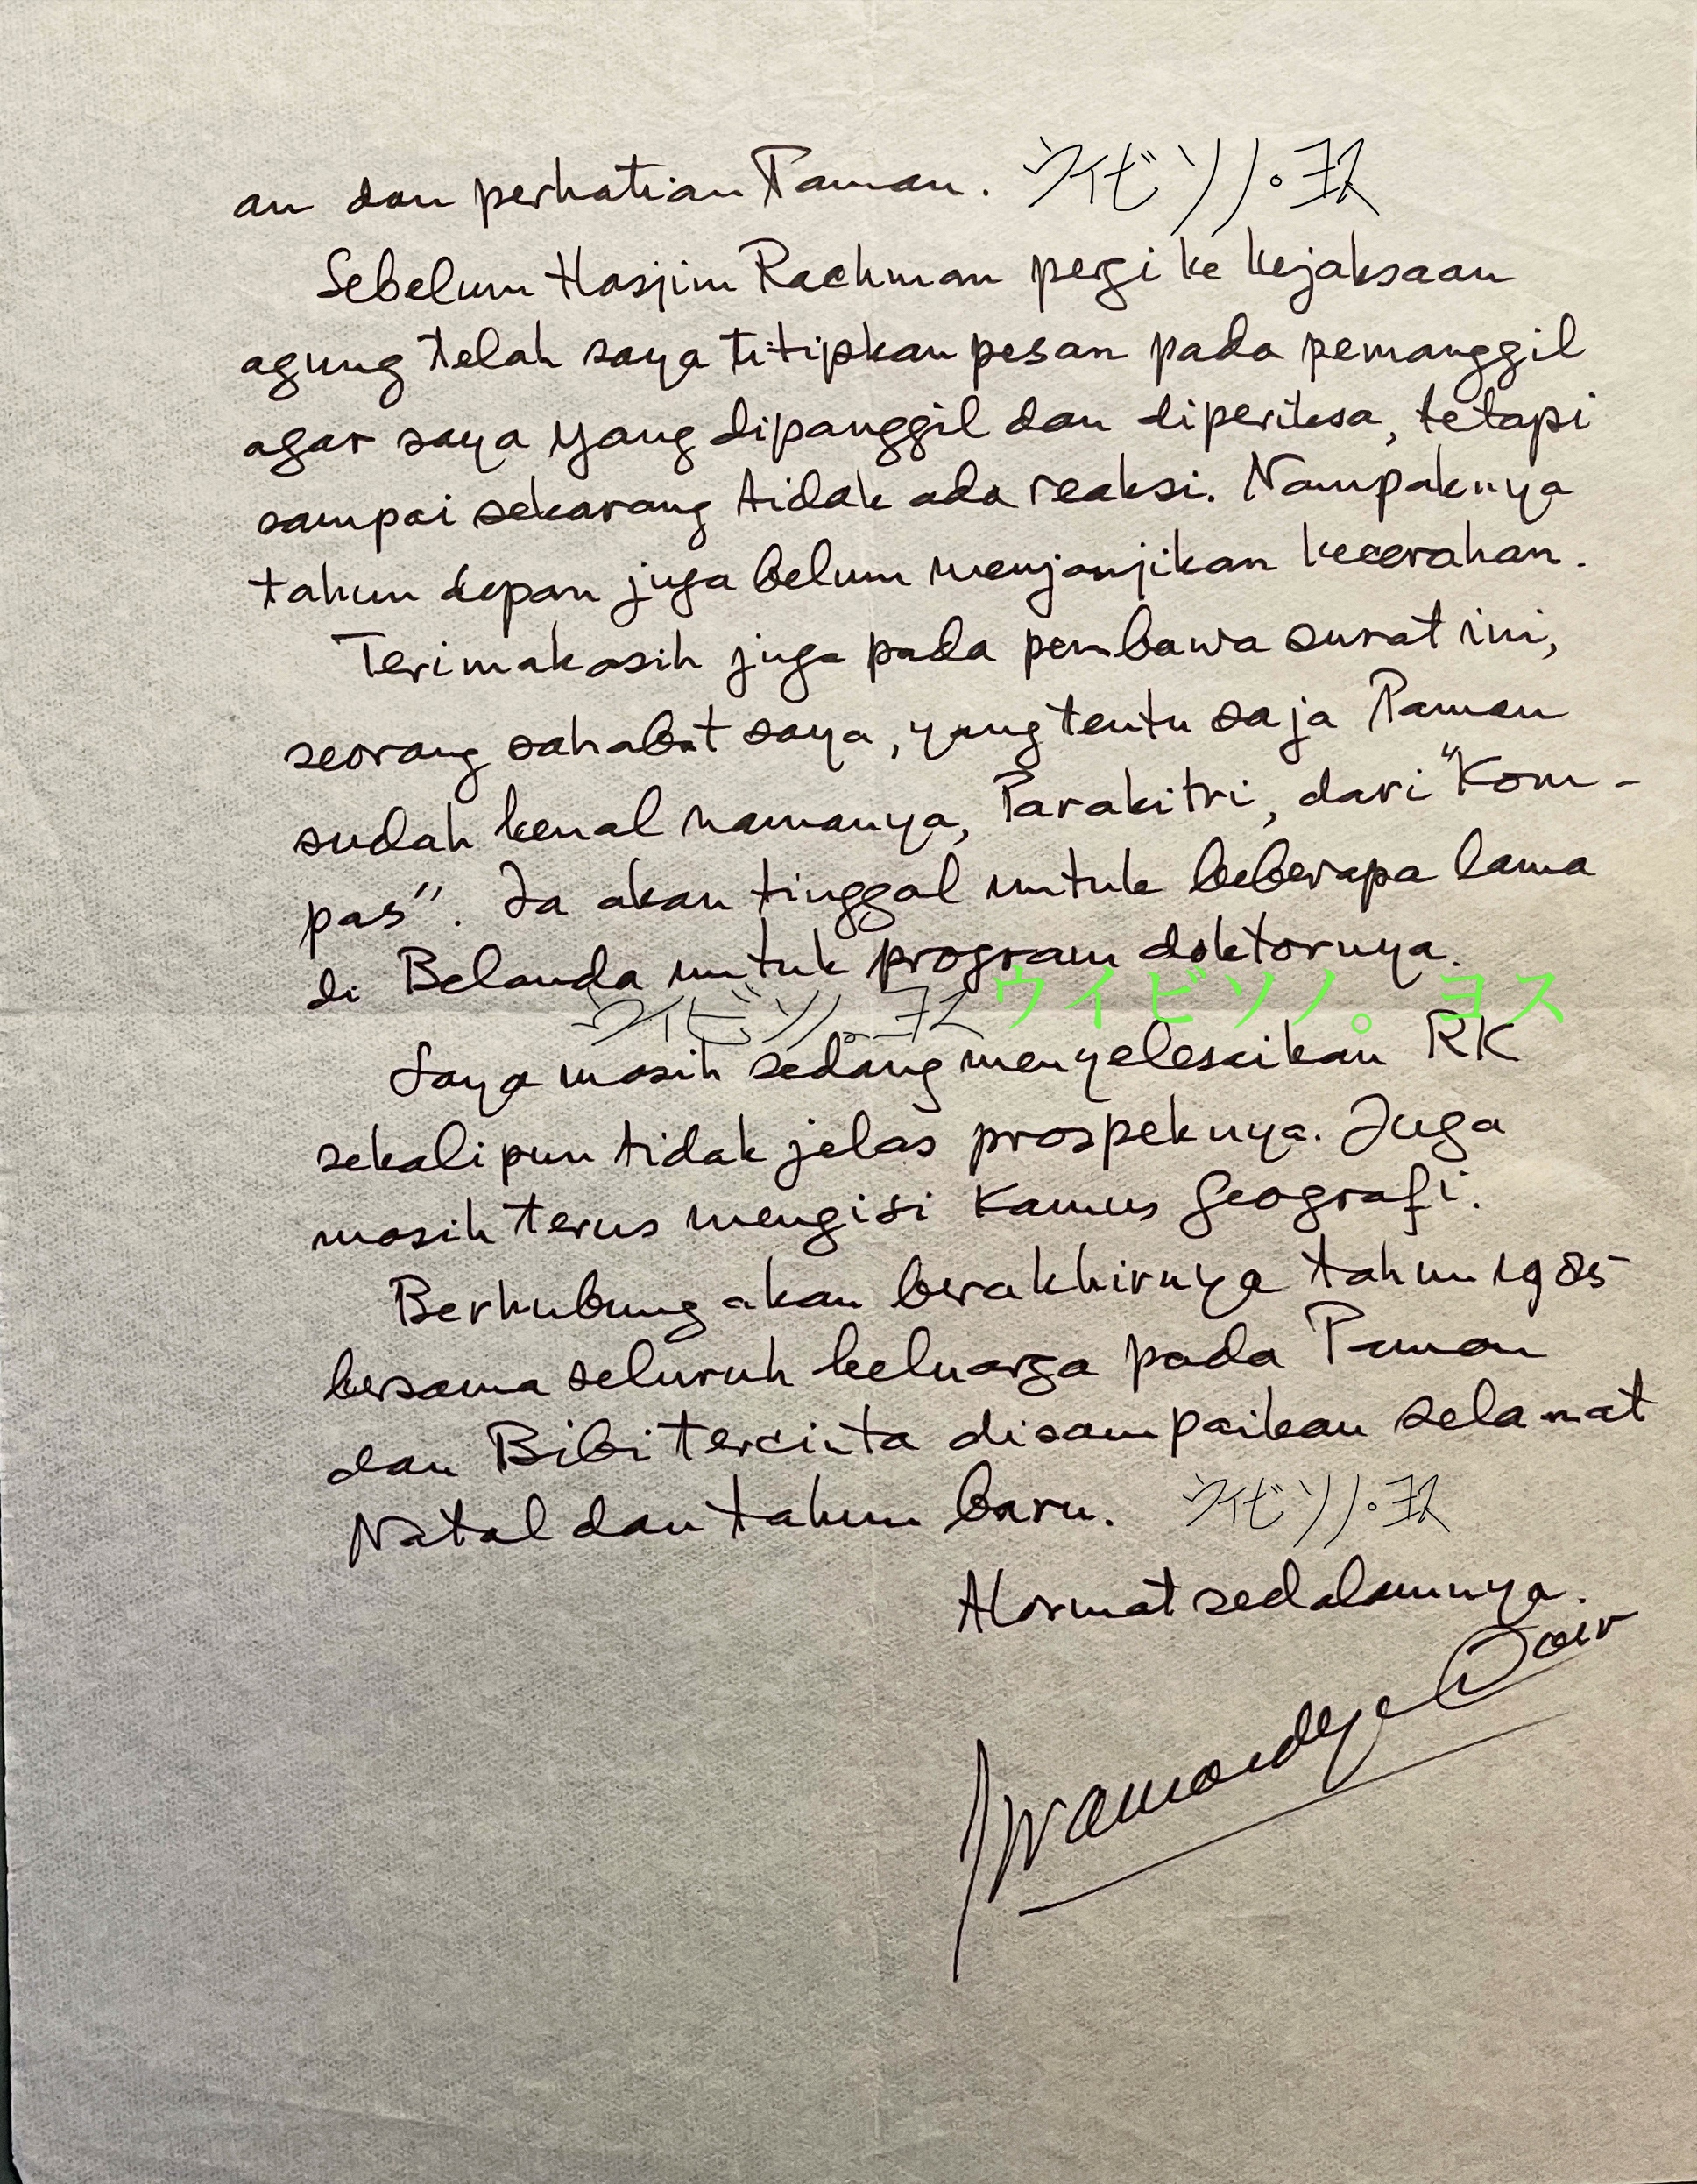 an dan perhatian Paman. ウイビソノ。ヨス
Sebelum Hasjim Rachman pergi ke kejaksaan
agung telah saya titipkan pesan pada pemanggil
agar saya yang dipanggil dan diperiksa, tetapi
sampai sekarang tidak ada reaksi. Nampaknya
tahun depan juga belum menjanjikan kecerahan.
Terimakasih juga pada pembawa surat ini,
seorang sahabat saya, yang tentu saja Paman
sudah kenal namanya, Parakitri, dari "Kom-
pas". Ia akan tinggal untuk beberapa lama
di Belanda untuk program doktornya.
ウイビソノ。ヨス ウイビソノ。ヨス
Saya masih sedang menyelesaikan RK
sekalipun tidak jelas prospeknya. Juga
masih terus mengisi Kamus Geografi.
Berhubung akan berakhirnya tahun 1985
bersama seluruh keluarga pada Paman
dan Bibi tercinta disampaikan selamat
Natal dan tahun baru. ウイビソノ。ヨス
Hormat sedalamnya.
Pramoedya